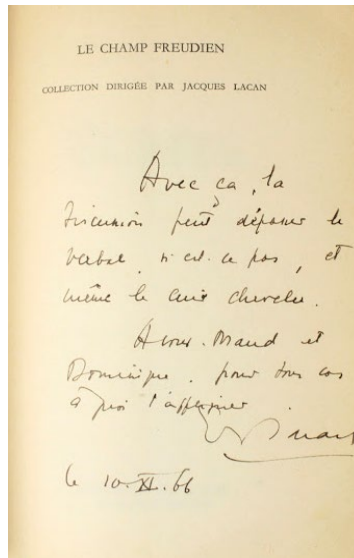 LE CHAMP FREUDIEN
COLLECTION DIRIGÉE PAR JACQUES LACAN
Avec ça, la
discussion peut dépasser le
verbal, n'est-ce pas, et
même le cuir chevelu.
A vous. Maud et
Dominique. pour tous cas
à quoi
le 10. XI. 66